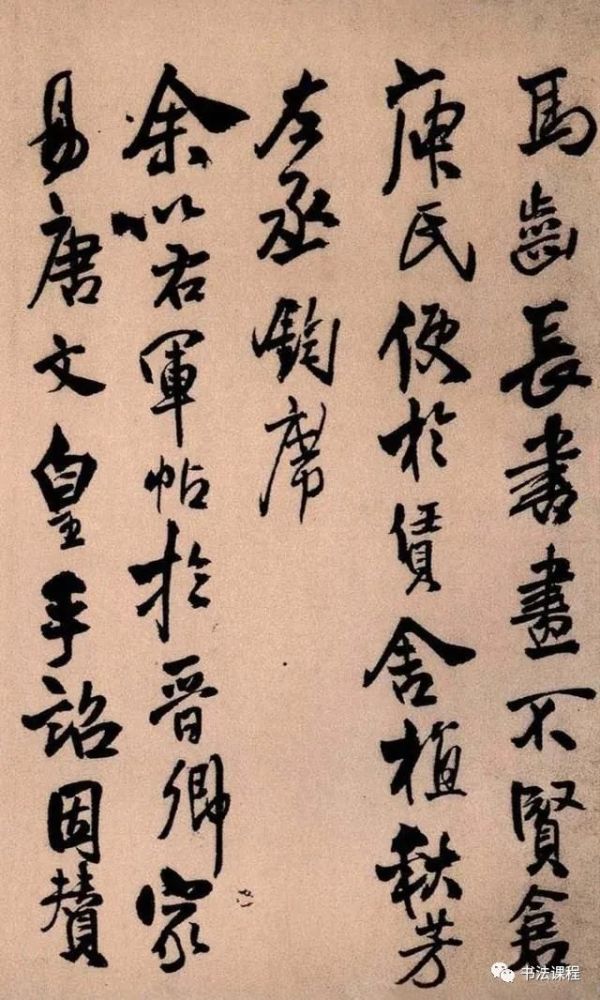 馬齒長書畫不賢倉
庾氏便於賃舍植秋芳
左丞鈞席
余以右軍帖於晉卿家
易唐文皇手詔因贊
书法课程